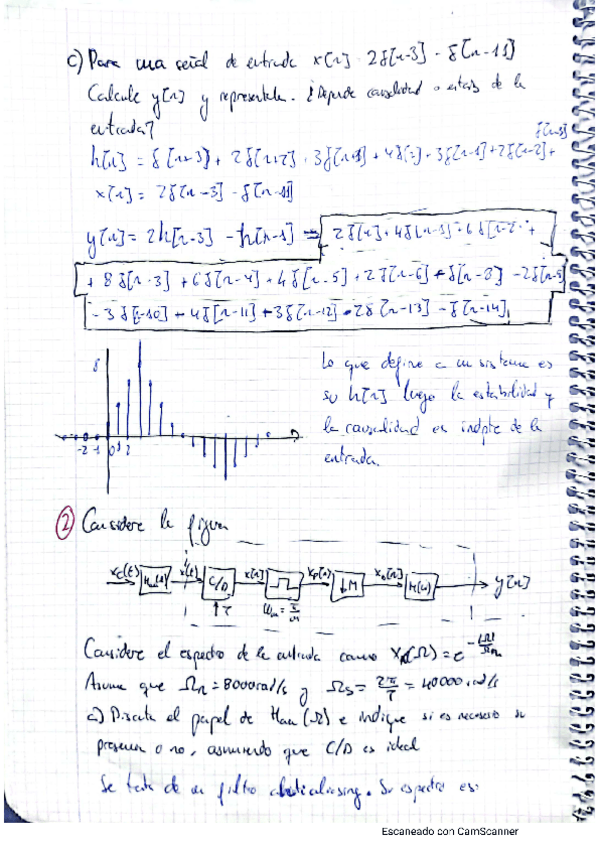 c) Para una señal de entrada x[n] = 2δ[n-3] - δ[n-11]
Calcule y[n] y representela. ¿Depende causalidad o estab de la
entrada?
δ[n-3]
h[n] = δ[n+3] + 2δ[n+2] + 3δ[n+1] + 4δ[n] + 3δ[n-1] + 2δ[n-2] +
x[n] = 2δ[n-3] - δ[n-11]
y[n] = 2h[n-3] - h[n-11] ⇒ 2δ[n] + 4δ[n-1] + 6δ[n-2] +
+ 8δ[n-3] + 6δ[n-4] + 4δ[n-5] + 2δ[n-6] - δ[n-8] - 2δ[n-9]
- 3δ[n-10] - 4δ[n-11] - 3δ[n-12] - 2δ[n-13] - δ[n-14]
8
-2 -1 0 1 2
Lo que define a un sistema es
su h[n] luego la estabilidad y
la causalidad es indpte de la
entrada.
② Considere la figura
xc(t) Haa(Ω) x(t) C/D x[n] xp[n] ↓M xd[n] H(ω) y[n]
↑T ωm = π/M
Considere el espectro de la entrada como
Asuma que = 8000 rad/s y Ωs = 2π/T = 40000 rad/s
a) Discuta el papel de Haa(Ω) e indique si es necesario su
presencia o no, asumiendo que C/D es ideal
Se trata de un filtro antialiasing. Su espectro es:
Escaneado con CamScanner